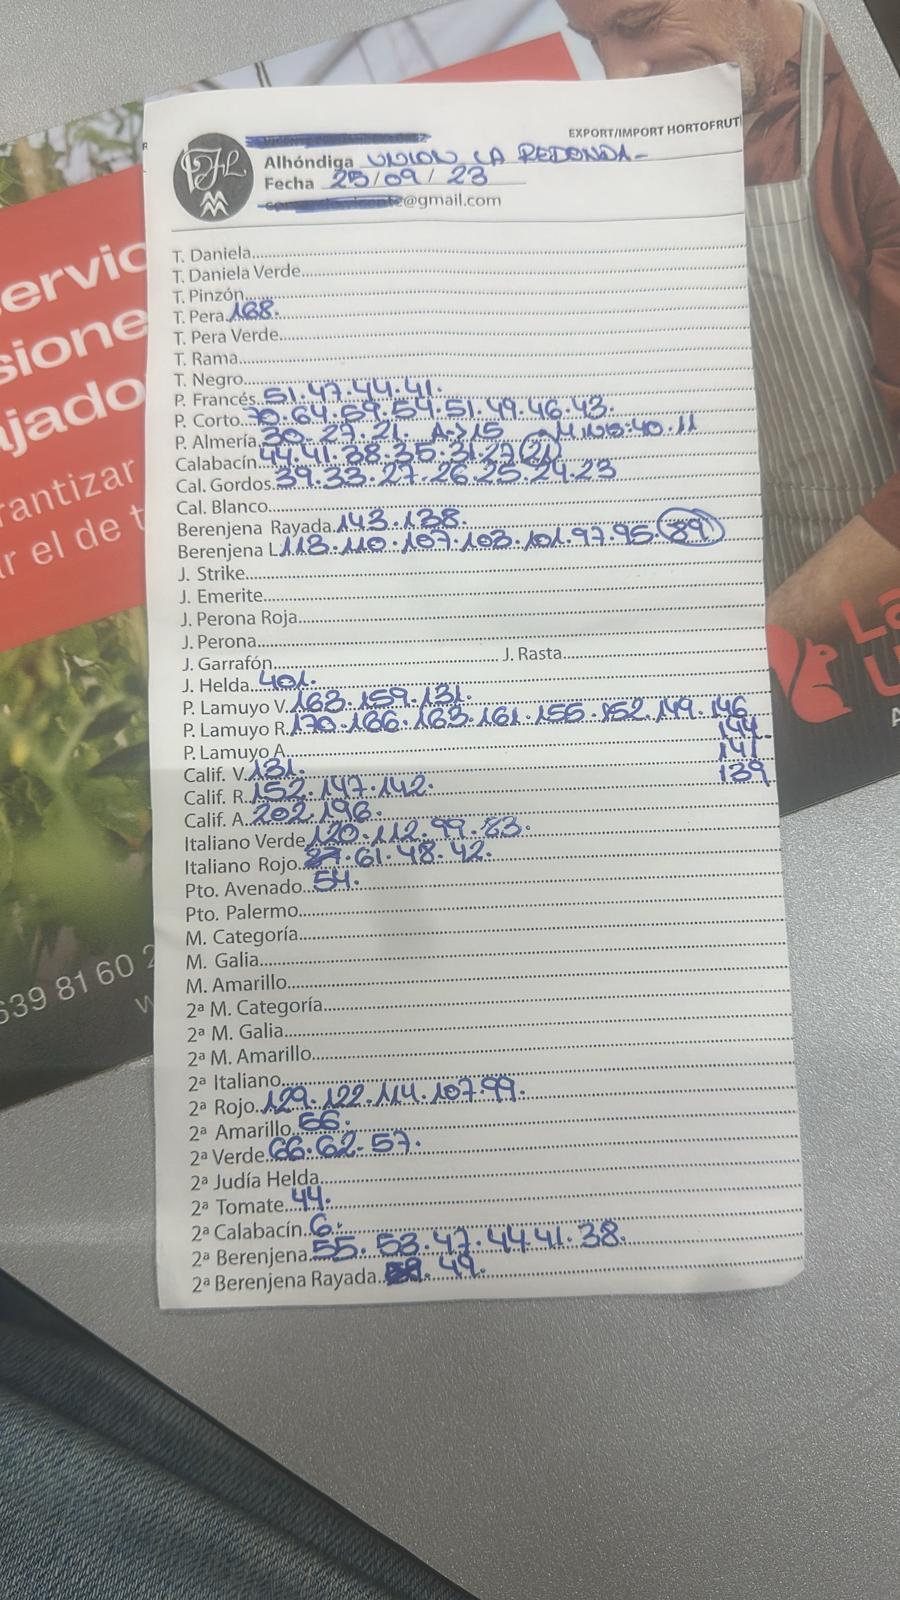 EXPORT/IMPORT HORTOFRUT
Alhóndiga UNION LA REDONDA-
Fecha 25/09/23
@gmail.com
T. Daniela
T. Daniela Verde
T. Pinzón
T. Pera 168.
T. Pera Verde
T. Rama
T. Negro
P. Francés 51.47.44.41.
P. Corto 70.64.59.54.51.49.46.43.
P. Almería 30.27.21. A->15 MINIS:40.11
Calabacín 44.41.38.35.31.27 21
Cal. Gordos 39.33.27.26.25.24.23
Cal. Blanco
Berenjena Rayada 143.138.
Berenjena L 113.110.107.103.101.97.95.89
J. Strike
J. Emerite
J. Perona Roja
J. Perona
J. Garrafón J. Rasta
J. Helda 401.
P. Lamuyo V. 163.159.131.
P. Lamuyo R. 170.166.163.161.155.152.149.146
144.
P. Lamuyo A
141
Calif. V. 131.
139
Calif. R. 152.147.142.
Calif. A. 202.196.
Italiano Verde 120.112.99.83.
Italiano Rojo .61.48.42.
Pto. Avenado 54.
Pto. Palermo
M. Categoría
M. Galia
M. Amarillo
2ª M. Categoría
2ª M. Galia
2ª M. Amarillo
2ª Italiano
2ª Rojo 129.122.114.107.99.
2ª Amarillo 56.
2ª Verde 66.62.57.
2ª Judía Helda
2ª Tomate 44.
2ª Calabacín 6.
2ª Berenjena 55.53.47.44.41.38.
2ª Berenjena Rayada . 49.
ervic
sione
ajado
rantizar
ar el de t
639 81 60 2
w
La
U
A